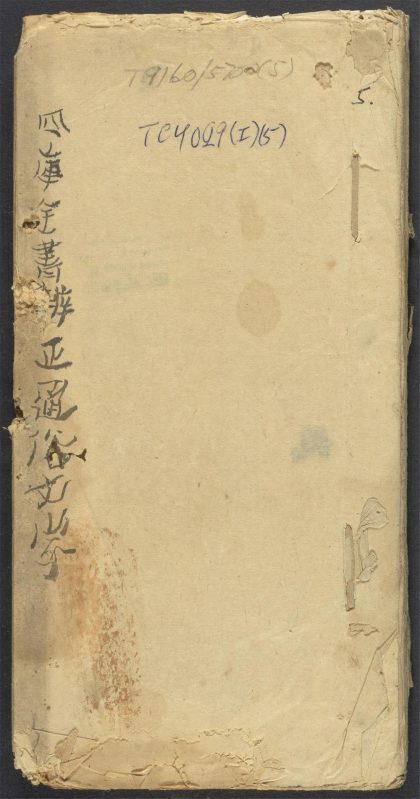 5.
TC4029(I)(5)
四庫全書辨正通俗文字